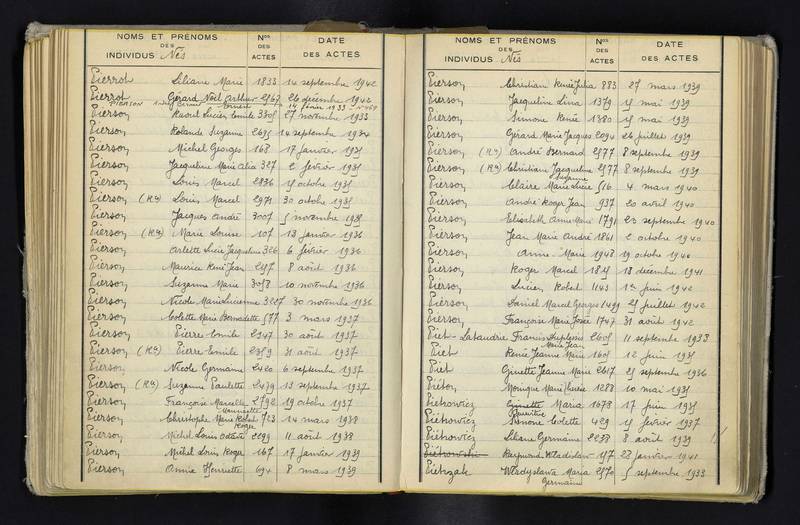 NOMS ET PRÉNOMS
DES
INDIVIDUS Nés
Nos
DES
ACTES
DATE
DES ACTES
Pierrot Liliane Marie 1833 14 septembre 1942
Pierrot Gérard Noël Arthur 2567 26 décembre 1942
PIERSON 14 février 1933
Pierson Raoul Lucien Emile 3305 27 novembre 1933
Pierson Rolande Suzanne 2695 14 septembre 1934
Pierson Michel Georges 168 17 janvier 1935
Pierson Jacqueline Marie 327 2 février 1935
Pierson Louis Marcel 2836 15 octobre 1935
Pierson (Rn) Louis Marcel 2971 30 octobre 1935
Pierson Jacques André 3007 5 novembre 1935
Pierson (Rn) Marie Louise 107 13 janvier 1936
Pierson Arlette Lucie Jacqueline 326 6 février 1936
Pierson Maurice René Jean 2157 8 août 1936
Pierson Suzanne Marie 3058 10 novembre 1936
Pierson Nicole Marie Lucienne 3227 30 novembre 1936
Pierson Colette Marie Bernadette 577 3 mars 1937
Pierson Pierre Emile 2347 30 août 1937
Pierson (Rn) Pierre Emile 2359 31 août 1937
Pierson Nicole Germaine 2420 6 septembre 1937
Pierson (Rn) Suzanne Paulette 2479 13 septembre 1937
Pierson Françoise Marcelle 2792 19 octobre 1937
Henriette
Pierson Christophe Marie Robert 723 14 mars 1938
Roger
Pierson Michel Louis 2199 11 août 1938
Pierson Michel Louis Roger 167 17 janvier 1939
Pierson Annie Henriette 694 8 mars 1939
NOMS ET PRÉNOMS
DES
INDIVIDUS Nés
Nos
DES
ACTES
DATE
DES ACTES
Pierson Christian René 883 27 mars 1939
Pierson Jacqueline Lina 1379 15 mai 1939
Pierson Simone Renée 1380 15 mai 1939
Pierson Gérard Marie Jacques 2094 26 juillet 1939
Pierson (Rn) André Bernard 2577 8 septembre 1939
Pierson (Rn) Christian Jacqueline 2577 8 septembre 1939
Suzanne
Pierson Claire Marie Lucie 516 4 mars 1940
Pierson André Roger Jean 937 20 avril 1940
Pierson Elisabeth Anne Marie 1791 23 septembre 1940
Pierson Jean Marie André 1861 2 octobre 1940
Pierson Anne Marie 1948 19 octobre 1940
Pierson Roger Marcel 1825 18 décembre 1941
Pierson Lucien Robert 1143 1er juin 1942
Pierson Daniel Marcel Georges 1499 25 juillet 1942
Pierson Françoise Marie Josée 1747 31 août 1942
Piet-Lataudrie Francis 2605 11 septembre 1933
Marie Jean
Piet Renée Jeanne Marie 1605 12 juin 1935
Piet Ginette Jeanne Marie 2617 25 septembre 1936
Piéton Monique Marie 1288 10 mai 1935
Pietrowicz Ginette Maria 1678 17 juin 1935
Pietrowicz Simone Colette 429 15 février 1937
Piétrowicz Liliane Germaine 2238 8 août 1939
Piétrowski Raymond Wladislaw 157 22 janvier 1941
Pietrzak Wladyslawa Maria 2570 5 septembre 1933
Germaine